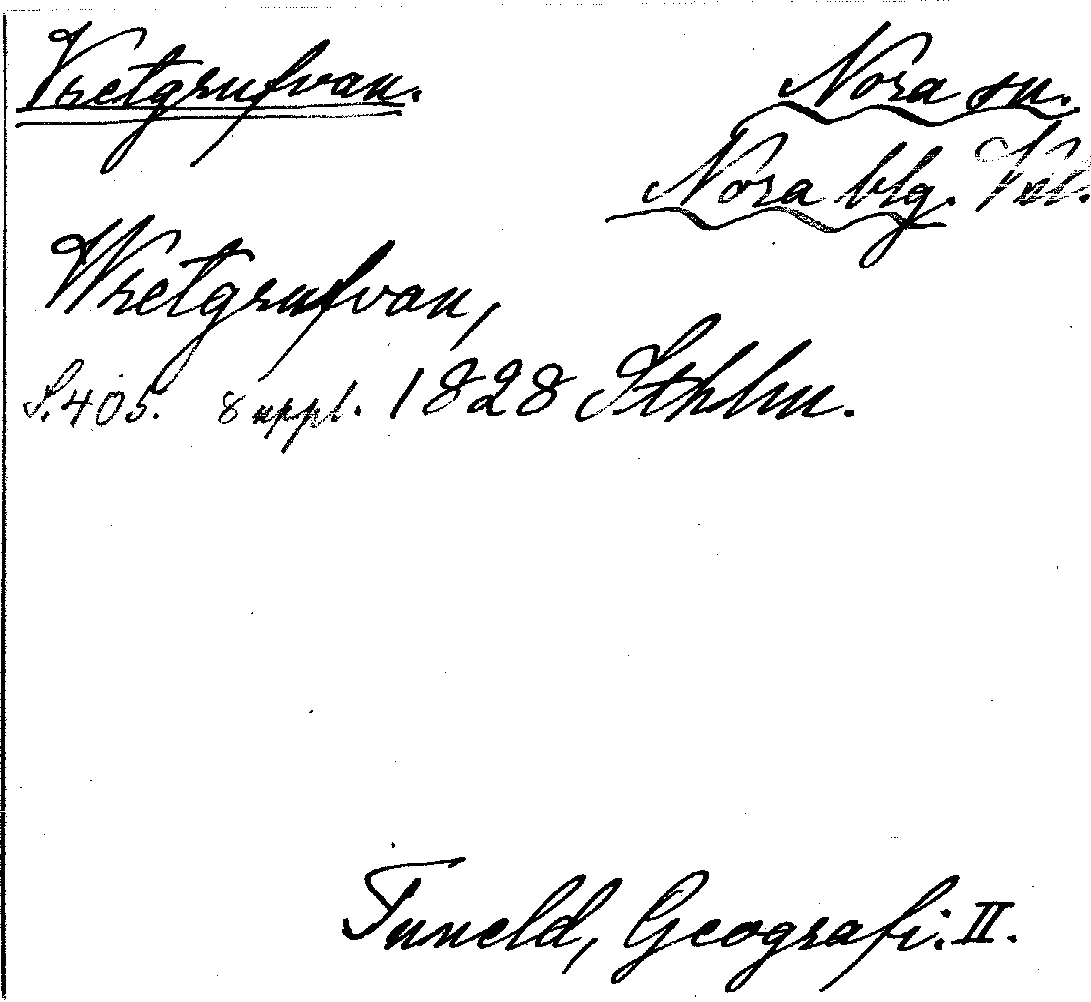 Vretgrufvan.
Nora sn.
Nora blg. Vstl.
Wretgrufvan,
S. 405. 8 uppl. 1828 Sthlm.
Tuneld, Geografi. II.